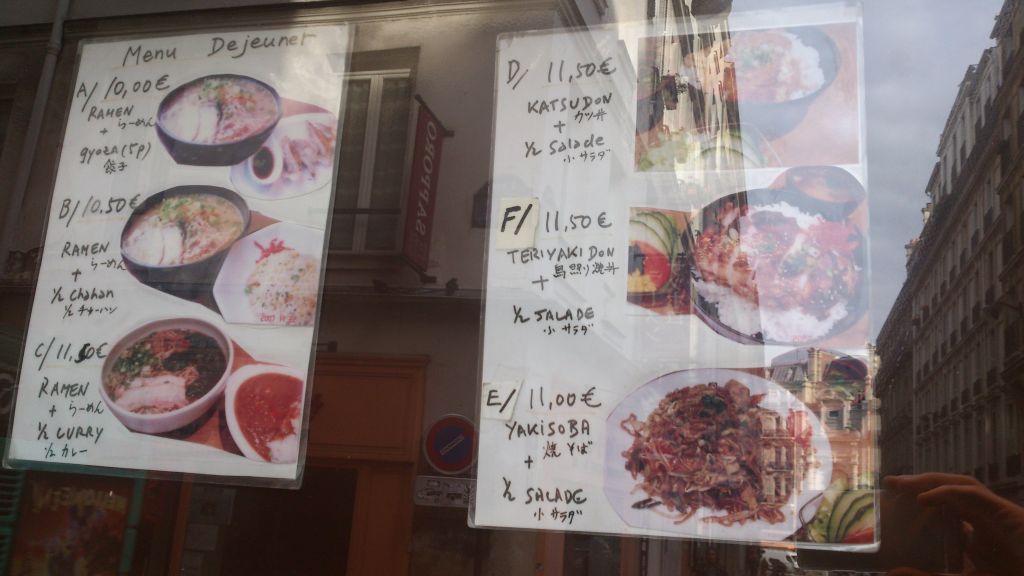 Menu Dejeuner
A/ 10,00€
RAMEN
+ らーめん
gyoza (5p)
餃子
B/ 10,50€
RAMEN
+ らーめん
½ Chahan
½ チャーハン
C/ 11,50€
RAMEN
+ らーめん
½ CURRY
½ カレー
D/ 11,50€
KATSUDON
+ カツ丼
½ Salade
小 サラダ
F/ 11,50€
TERIYAKI DON
+ 鳥照り焼丼
½ SALADE
小 サラダ
E/ 11,00€
YAKISOBA
+ 焼そば
½ SALADE
小 サラダ
SAPPORO